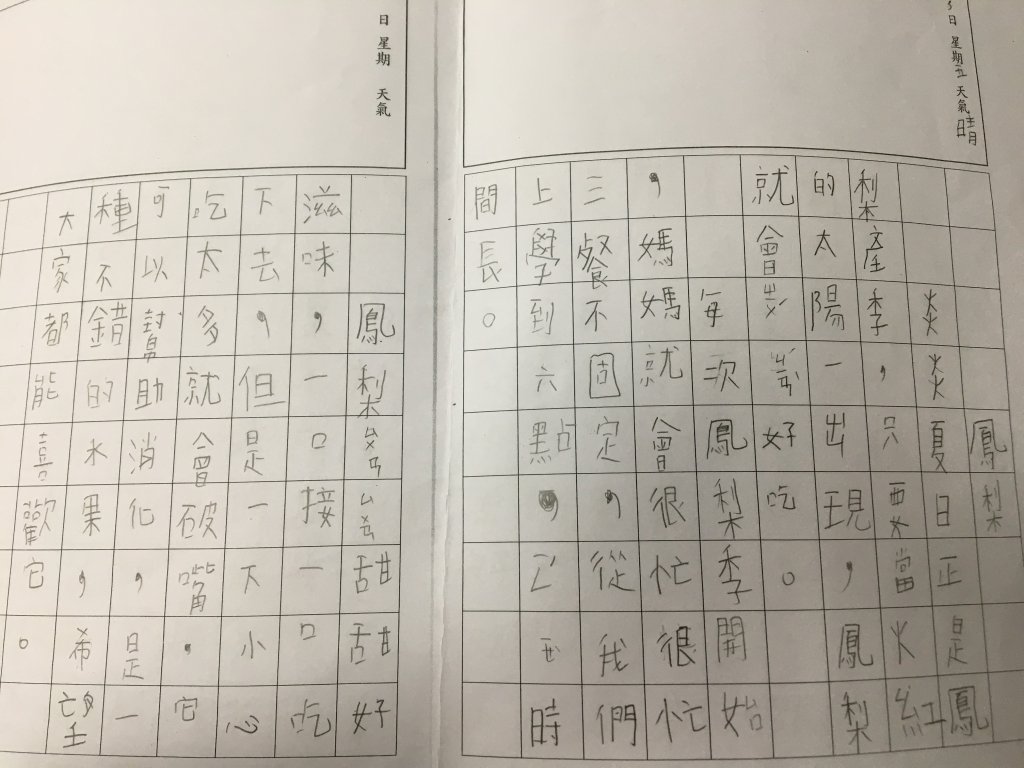 日 星期五 天氣晴
鳳梨
炎炎夏日正是鳳
梨產季,只要當火紅
的太陽一出現,鳳梨
就會好吃。
每次鳳梨季開始
,媽媽就會很忙很忙
三餐不固定,從我們
上學到六點,時
間長。
日 星期 天氣
鳳梨甜甜好
滋味,一口接一口吃
下去,但是一不小心
吃太多就會破嘴,它
可以幫助消化,是一
種不錯的水果,希望
大家都能喜歡它。